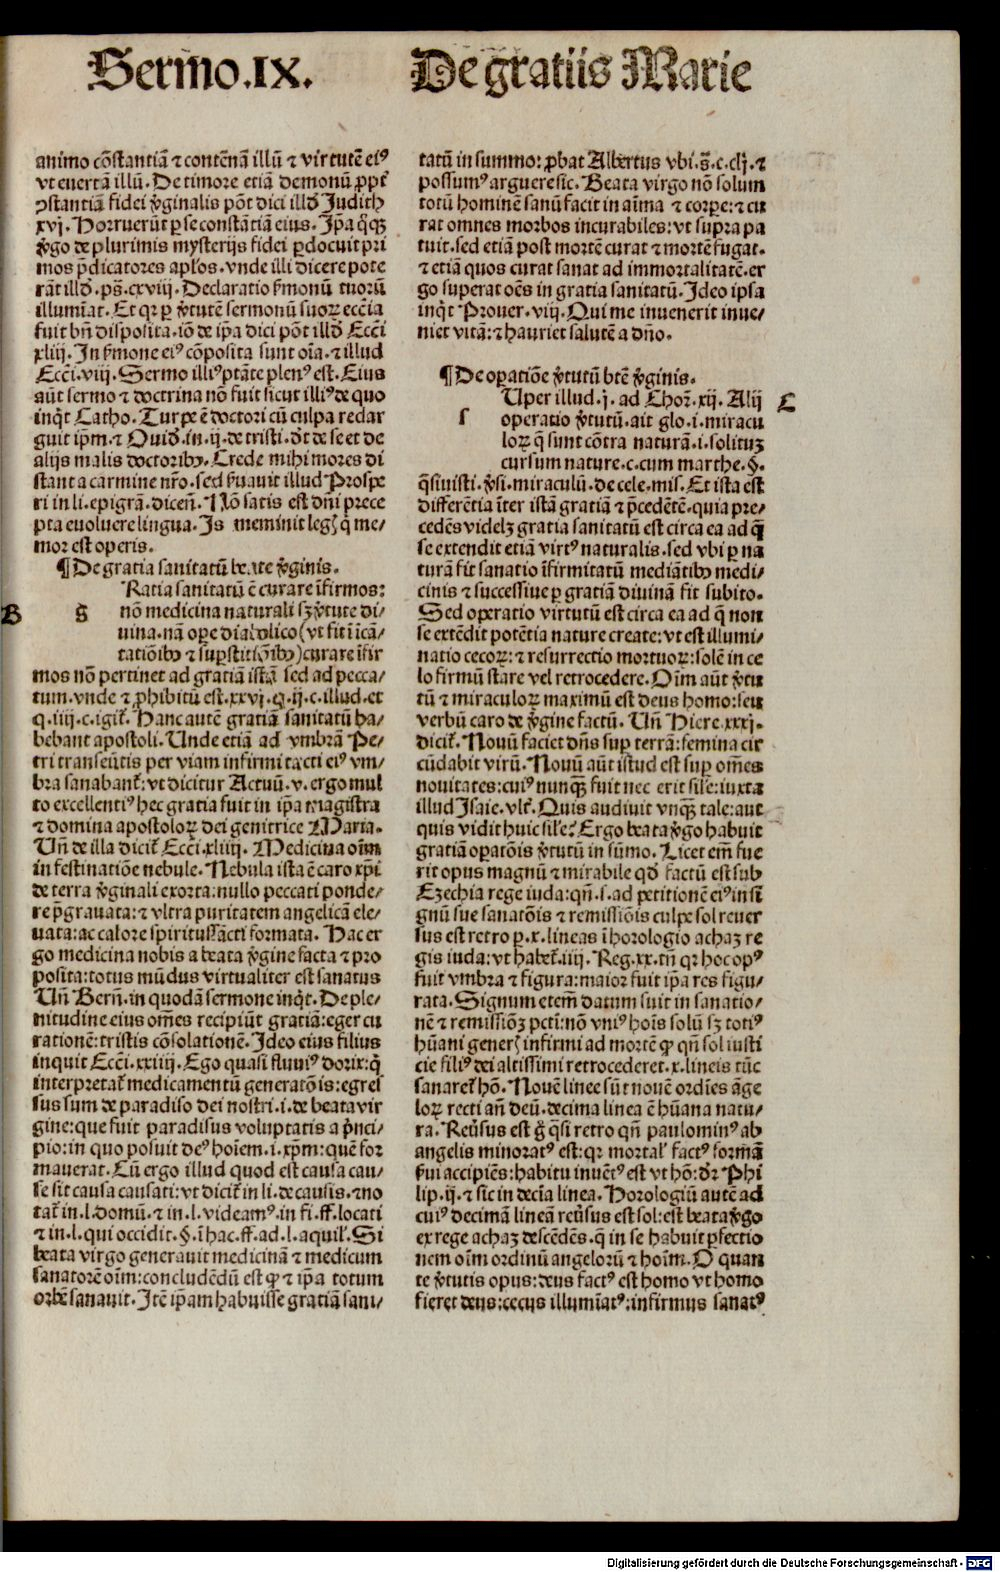 Sermo.IX.
De gratiis Marie
animo cōstantiā ⁊ contēnā illū ⁊ virtutē eiꝰ
vt euertā illū. De timore etiā demonū ꝓpt̄
ꝯstantiā fidei v̓ginalis pōt dici illd̓ Judith
xvj. Horruerūt perse constātiā eius. Jp̄a q̄qꝫ
v̓go de plurimis mysterijs fidei ꝑdocuit pri
mos p̄dicatores apl'os. vnde illi dicere pote
rāt illd̓. ps̄. cxviij. Declaratio s̓monū tuorū
illumīat. Et qꝛ ꝑ v̓tutē sermonū suoꝝ ecc̄ia
fuit bn̄ disposita. iō de ip̄a dici pōt illd̓ Ecc̄i
xliij. Jn s̓mone eiꝰ cōposita sunt oīa. ⁊ illud
Ecc̄i. viij. Sermo illiꝰ ptāte plenꝰ est. Eius
aūt sermo ⁊ doctrina nō fuit sicut illiꝰ de quo
inq̄t Catho. Turpe ē doctori cū culpa redar
guit ip̄m. ⁊ Ouid̓. in. ij. de tristi. dt̄ de se et de
alijs malis doctoribꝰ. Crede mihi mores di
stant a carmine nr̄o. sed s̓uauit illud Prospe
ri in li. epigrā. dicen̄. Nō satis est dn̄i prece
pta euoluere lingua. Js meminit leg̓ q̄ me-
mor est operis.
¶De gratia sanitatū beate v̓ginis.
Ratia sanitatū ē curare īfirmos:
B g nō medicina naturali sꝫ v̓tute di/
uina. nā oꝑe diabolico (vt fit ī icā/
tatiōibꝰ ⁊ suꝑstitiōibꝰ) curare īfir
mos nō pertinet ad gratiā istā sed ad pecca-
tum. vnde ⁊ ꝓhibitū est. xxvj. q. ij. c. illud. et
q. iiij. c. igit̄. Hanc autē gratiā sanitatū ha/
bebant apostoli. Unde etiā ad vmbrā Pe/
tri transeūtis per viam infirmi tacti eiꝰ vm/
bra sanabant̄: vt dicitur Actuū. v. ergo mul
to excellentiꝰ hec gratia fuit in ip̄a magistra
⁊ domina apostoloꝝ dei genitrice Maria.
Un̄ de illa dicit̄ Ecc̄i. xliij. Medicina oīm
in festinatiōe nebule. Nebula ista ē caro xp̄i
de terra v̓ginali exorta: nullo peccati ponde/
re p̄grauata: ⁊ vltra puritatem angelicā ele/
uata: ac calore spiritussācti formata. Hac er
go medicina nobis a beata v̓gine facta ⁊ pro
posita: totus mūdus virtualiter est sanatus
Un̄ Bern̄. in quodā sermone inq̄t. De ple/
nitudine eius om̄es recipiūt gratiā: eger cu
rationē: tristis cōsolationē. Jdeo eius filius
inquit Ecc̄i. xxiiij. Ego quasi fluuiꝰ dorix: q̄
interpretat̄ medicamentū generatōis: egres
sus sum de paradiso dei nostri. i. de beata vir
gine: que fuit paradisus voluptatis a p̓nci/
pio: in quo posuit deꝰ hoīem. i. xp̄m: quē for
mauerat. Cū ergo illud quod est causa cau/
se sit causa causati: vt dicit̄ in li. de causis. ⁊ no
tat̄ in. l. domū. ⁊ in. l. videamꝰ. in fi. ff. locati
⁊ in. l. qui occidit. §. ī hac. ff. ad. l. aquil̓. Si
beata virgo generauit medicinā ⁊ medicum
sanatorē oīm: concludēdū est ꝙ ⁊ ip̄a totum
orbē sanauit. Jtē ip̄am habuisse gratiā sani/
tatū in summo: ꝓbat Albertus vbi. s̄. c. clj. ⁊
possumꝰ arguere sic. Beata virgo nō solum
totū hominē sanū facit in aīma ⁊ corpe: ⁊ cu
rat omnes morbos incurabiles: vt supra pa
tuit. sed etiā post mortē curat ⁊ mortē fugat.
⁊ etiā quos curat sanat ad immortalitatē. er
go superat oēs in gratia sanitatū. Jdeo ipsa
inq̄t Prouer. viij. Qui me inuenerit inue/
niet vitā: ⁊ hauriet salutē a dn̄o.
¶De oꝑatiōe v̓tutū btē v̓ginis.
Uper illud. j. ad Choꝝ. xij. Alij C
s operatio v̓tutū. ait glo. i. miracu
loꝝ q̄ sunt cōtra naturā. i. solituꝫ
cursum nature. c. cum marthe. §.
q̄siuisti. v̓si. miraculū. de cele. mis. Et ista est
differētia īter istā gratiā ⁊ p̄cedētē. quia pre/
cedēs videlꝫ gratia sanitatū est circa ea ad q̄
se extendit etiā virtꝰ naturalis. sed vbi ꝑ na
turā fit sanatio īfirmitatū mediātibꝰ medi/
cinis ⁊ successiue ꝑ gratiā diuinā fit subito.
Sed operatio virtutū est circa ea ad q̄ non
se extēdit potētia nature create: vt est illumi/
natio cecoꝝ: ⁊ resurrectio mortuoꝝ: solē in ce
lo firmū stare vel retrocedere. Oīm aūt v̓tu
tū ⁊ miraculoꝝ maximū est deus homo: seu
verbū caro de v̓gine factū. Un̄ Hiere. xxxj.
dicit̄. Nouū faciet dn̄s suꝑ terrā: femina cir
cūdabit virū. Nouū aūt istud est suꝑ om̄es
nouitates: cuiꝰ nunqꝫ fuit nec erit sil'e: iuxta
illud Jsaie. vlt̄. Quis audiuit vnqꝫ tale: aut
quis vidit huic sil'e? Ergo beata v̓go habuit
gratiā oꝑatōis v̓tutū in sūmo. Licet em̄ fue
rit opus magnū ⁊ mirabile qd̓ factū est sub
Ezechia rege iuda: qn̄. s. ad petitionē eiꝰ in si
gnū sue sanatōis ⁊ remissiōis culpe sol reuer
sus est retro ꝑ. x. lineas ī horologio achaz re
gis iuda: vt habet̄. iiij. Reg. xx. tn̄ qꝛ hoc opꝰ
fuit vmbra ⁊ figura: maior fuit ip̄a res figu/
rata. Signum etem̄ datum fuit in sanatio/
nē ⁊ remissiōꝫ pctī: nō vniꝰ hoīs solū sꝫ totiꝰ
hūani gener̓ infirmi ad mortē ꝙ qn̄ sol iusti
cie filiꝰ dei altissimi retrocederet. x. lineis tūc
sanaret̄ hō. Nouē linee sūt nouē ordīes āge
loꝝ recti an̄ deū. decima linea ē hūana natu/
ra. Reūsus est g̓ q̄si retro qn̄ paulominꝰ ab
angelis minoratꝰ est: qꝛ mortal̓ factꝰ formā
s̓ui accipiēs: habitu inuētꝰ est vt hō: dr̄ Phi
lip. ij. ⁊ sic in decīa linea. Horologiū autē ad
cuiꝰ decimā lineā reūsus est sol: est beata v̓go
ex rege achaz descēdēs. q̄ in se habuit ꝑfectio
nem oīm ordinū angeloꝝ ⁊ hoīm. O quan
te v̓tutis opus: deus factꝰ est homo vt homo
fieret deus: cecus illumīatꝰ: infirmus sanatꝰ
Digitalisierung gefördert durch die Deutsche Forschungsgemeinschaft - DFG